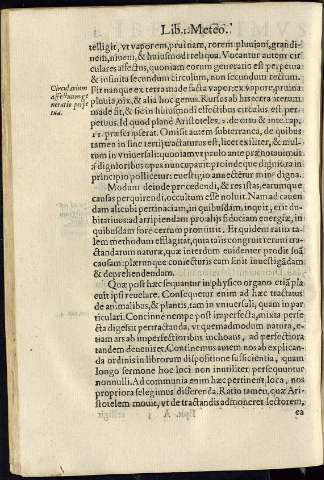 Lib.1. Meteo.
telligit, vt vaporem, pruinam, rorem pluuiam, grandi-
nem, niuem, & huiusmodi reliqua. Vocantur autem cir-
culares affectus, quoniam eorum generatio est perpetua
& infinita secundum circulum, non secundum rectum.
Circularium
affectuum ge
neratio perpe
tua.
Fit nanque ex terra madefacta vapor: ex vapore, pruina
pluuia, nix, & alia hoc genus. Rursus ab his terra iterum
made fit, & sic in huiusmodi affectibus circulus, est per-
petuus. Id quod planè Aristoteles, 2. de ortu & inte.cap.
vlt. præscripserat. Omisit autem subterranea, de quibus
tamen in fine tertij tractaturus est, licet exiliter, & mul-
tum in vniuersali: quoniam vt paulo ante præ notauimus
à dignioribus opus nuncupatur: proinde quæ digniora in
principio pollicetur: è vestigio annectetur minùs digna.
Modum deinde procedendi, & res istas, earumque
causas perquirendi, occultum esse noluit. Nam ad cauen
dam alicubi pertinaciam, in quibusdam, inquit, erit du-
bitaturius: ad arripiendam pro alijs fiduciam energiæ, in
quibusdam fore certum promittit. Et quidem ratio ta-
lem methodum efflagitat, quia talis congruit rerum tra-
ctandarum naturæ, quæ interdum euidenter prodit suã
causam: plærumque coniecturis eam sinit inuestigãdam
& deprehendendam.
Quæ post hæc sequantur in physico organo etiã pla
cuit ipsi reuelare. Consequetur enim ad hæc tractatus
de animalibus, & plantis tam in vniuersali, quam in par
ticulari. Concinne nempe post imperfecta, mixta perfe
cta digessit pertractanda, vt quemadmodum natura, e-
tiam ars ab imperfectioribus inchoans, ad perfectiora
tandem deueniret. Continemus autem nos ab explican-
da ordinis in librorum dispositione sufficientia, quam
longo sermone hoc loci non inutiliter persequuntur
nonnulli. Ad communia enim hæc pertinent loca, nos
propriora selegimus disserenda. Ratio tamen, quæ Ari-
stotelem mouit, vt de tractandis admoneret lectorem,
ea